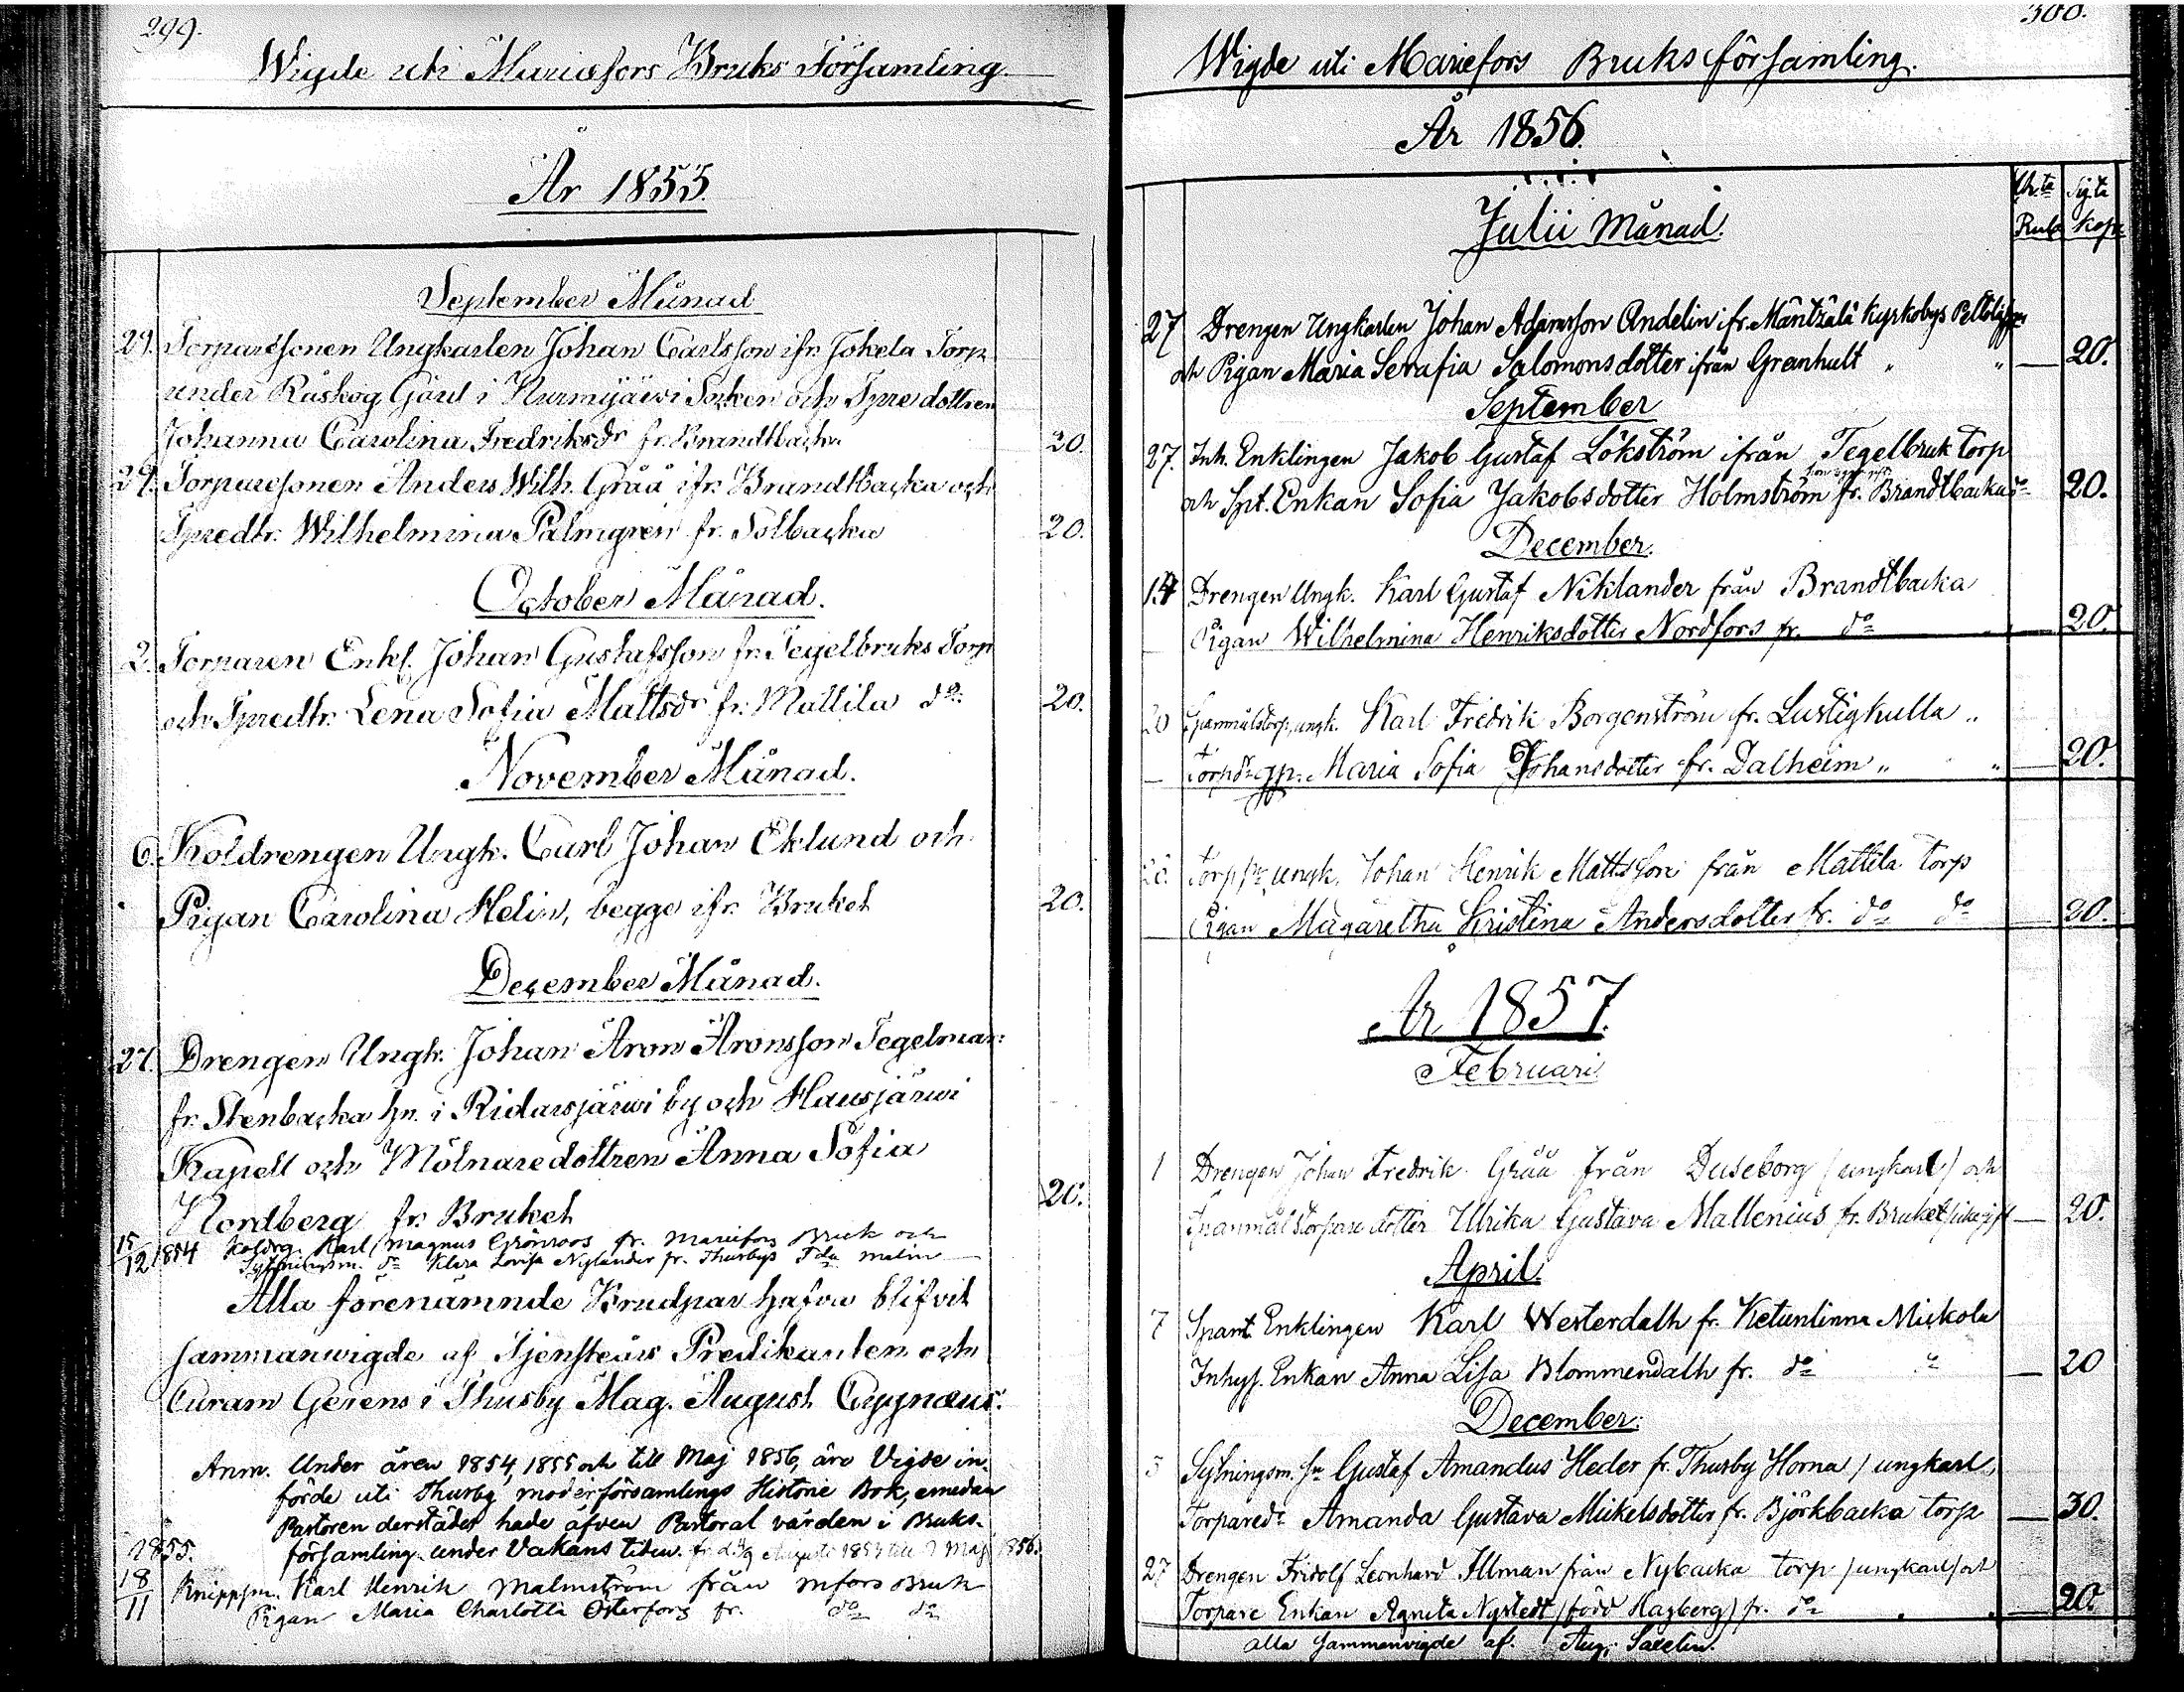 299.
Wigde uti Mariæfors Bruks Församling.
År 1855.
September Månad
29. Torparesonen Ungkarlen Johan Carlsson ifr. Jokela Torp
under Råskog Gård i Nurmijärvi Socken och Spredottren
Johanna Carolina Fredriksdr fr. Brandtbacka 20.
29. Torparesonen Anders Wilh. Gråå ifr. Brandtbacka och
Spredtr. Wilhelmina Palmgren fr. Solbacka 20.
October Månad.
2. Torparen Enkl. Johan Gustafsson fr. Tegelbruks Torp
och Spredtr. Lena Sofia Mattsdr fr. Mattila do 20.
November Månad.
6. Koldrengen Ungk. Carl Johan Eklund och
Pigan Carolina Helin, begge ifr. Bruket 20.
December Månad.
27. Drengen Ungk. Johan Aron Aronsson Tegelman
fr. Stenbacka hn. i Ridasjärvi by och Hausjärvi
Kapell och Mölnaredottren Anna Sofia
Nordberg fr. Bruket 20.
15/12 1854 Koldrg. Karl Magnus Grönroos fr. Mariefors Bruk och
Sytningsm. do Klara Lovisa Nylander fr. Thusby Malm
Alla förenämnde Brudpar hafva blifvit
sammanwigde af Tjenstförr. Predikanten och
Curam Gerens i Thusby Mag. August Cygnæus.
Anm. Under åren 1854, 1855 och till Maj 1856, äro Vigde in-
förde uti Thusby moderförsamlings Historie Bok, emedan
Pastoren derstädes hade äfven Pastoral vården i Bruks-
församling under Vakans tiden. fr. d. Augusti 1854 till Maj 1856.
1855.
18/11 Knippsm. Karl Henrik Malmström från Mfors Bruk
Pigan Maria Charlotta Österfors fr. do do
300.
Wigde uti Mariefors Bruks församling.
År 1856.
Julii Månad.
Rub. Kop.
27 Drengen Ungkarlen Johan Adamsson Andelin ifr. Mäntzälä kyrkobys
och Pigan Maria Serafia Salomonsdotter ifrån Granhult " " — 20.
September
27. Inh. Enklingen Jakob Gustaf Lökström ifrån Tegelbruk torp
och Spt. Enkan Sofia Jakobsdotter Holmström fr. Brandtbacka do 20.
December.
14 Drengen Ungk. Karl Gustaf Niklander från Brandtbacka
Pigan Wilhelmina Henriksdotter Nordfors fr. do — 20.
20 Spannmålstorp. ungk. Karl Fredrik Borgenström fr. Lustigkulla "
— Torpdr Maria Sofia Johansdotter fr. Dalheim " " — 20.
Torp sn ungk. Johan Henrik Mattsson från Mattila torp
Pigan Magaretha Kristina Andersdotter fr. do do — 20.
År 1857.
Februari
1 Drengen Johan Fredrik Gråå från Duseborg (ungkarl) och
Spanmålstorpare dotter Ulrika Gustava Mallenius fr. Bruket — 20.
April.
7 Spant. Enklingen Karl Westerdalh fr. Ketunlinna Mickola
Inhys. Enkan Anna Lisa Blommendalh fr. do " — 20
December:
3 Sytningsm. sn Gustaf Amandus Heder fr. Thusby Horna / ungkarl,
Torparedr Amanda Gustava Mickelsdotter fr. Björkbacka torp — 30.
27 Drengen Fridolf Leonhard Illman från Nybacka torp (ungkarl) och
Torpare Enkan Agneta Nystedt (född Hagberg) fr. do " " — 20.
alla sammanvigde af Aug. Sarelin.